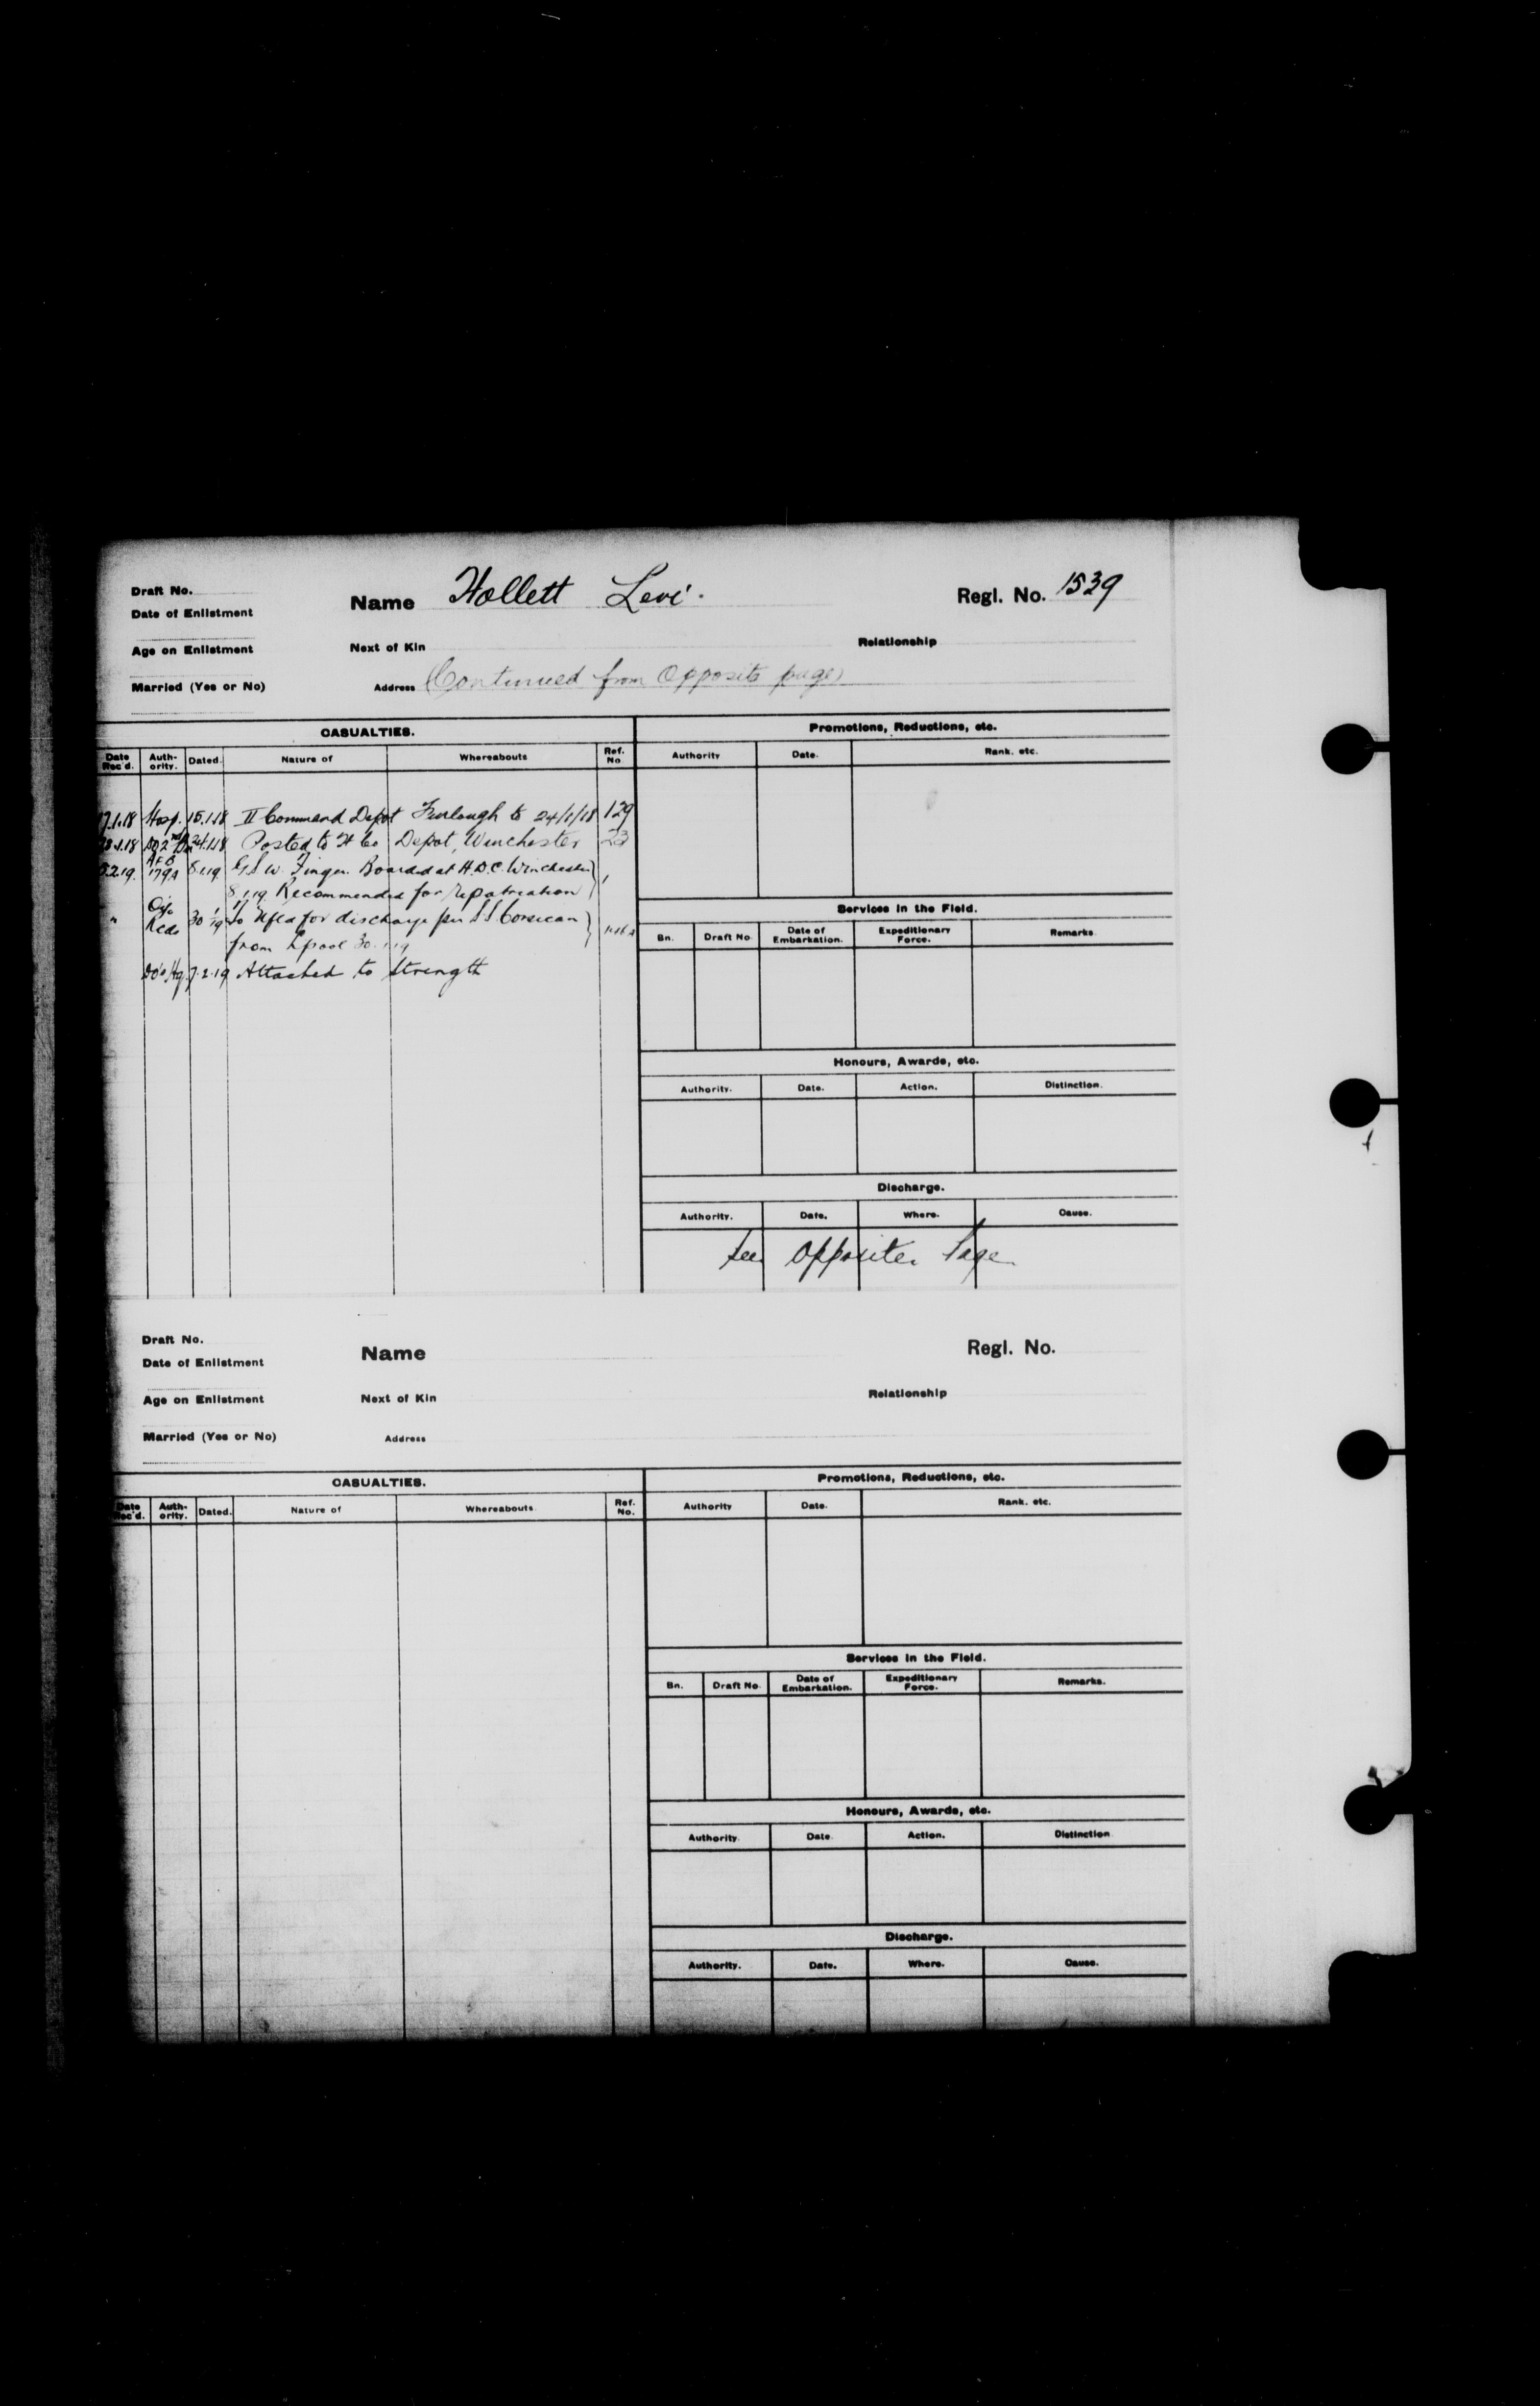 Draft No.
Date of Enlistment
Name Hollett Levi.
Regl. No. 1539
Age on Enlistment
Next of Kin
Relationship
Married (Yes or No)
Address (Continued from Opposite page)
CASUALTIES.
Promotions, Reductions, etc.
Date Rec'd. Auth-ority. Dated. Nature of Whereabouts Ref. No.
Authority Date. Rank. etc.
17.1.18 Hosp. 15.1.18 II Command Depot Furlough to 24/1/18 129
24.1.18 Posted to H Co Depot, Winchester 23
5.2.19. AFB 179A 8.1.19 G.S.W. Finger. Boarded at H.D.C. Winchester 1
8.1.19 Recommended for repatriation
" Reds 30 1/19 To Nfld for discharge per S.S. Corsican
from Lpool 30.1.19
7.2.19 Attached to Strength
Services in the Field.
Bn. Draft No. Date of Embarkation. Expeditionary Force. Remarks.
Honours, Awards, etc.
Authority. Date. Action. Distinction.
Discharge.
Authority. Date. Where. Cause.
See Opposite Page
Draft No.
Date of Enlistment
Name
Regl. No.
Age on Enlistment
Next of Kin
Relationship
Married (Yes or No)
Address
CASUALTIES.
Promotions, Reductions, etc.
Date Rec'd. Auth-ority. Dated. Nature of Whereabouts Ref. No.
Authority Date. Rank. etc.
Services in the Field.
Bn. Draft No. Date of Embarkation. Expeditionary Force. Remarks.
Honours, Awards, etc.
Authority. Date. Action. Distinction.
Discharge.
Authority. Date. Where. Cause.